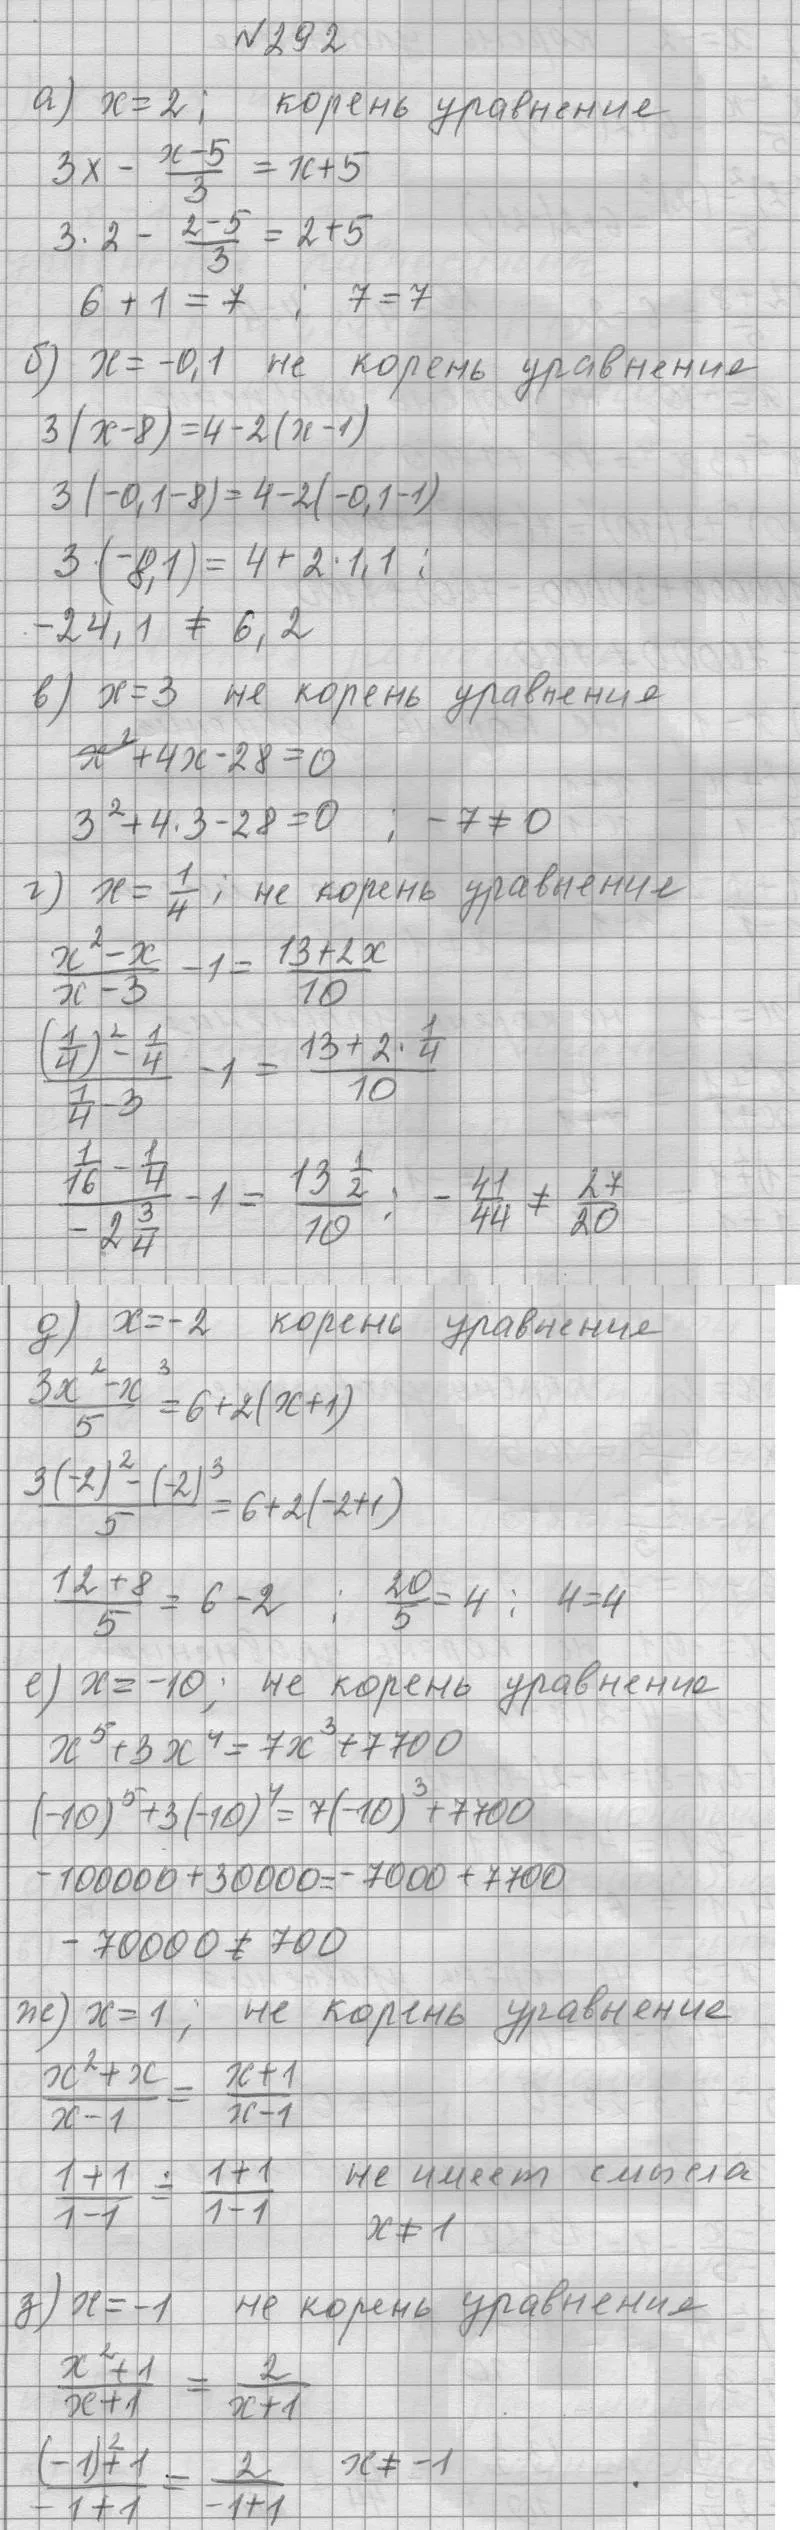 №292
а) x=2; корень уравнение
3x - (x-5)/3 = x+5
3·2 - (2-5)/3 = 2+5
6+1=7 ; 7=7
б) x=-0,1 не корень уравнение
3(x-8)=4-2(x-1)
3(-0,1-8)=4-2(-0,1-1)
3·(-8,1)=4+2·1,1 ;
-24,1 ≠ 6,2
в) x=3 не корень уравнение
x²+4x-28=0
3²+4·3-28=0 ; -7≠0
г) x=1/4; не корень уравнение
(x²-x)/(x-3) -1 = (13+2x)/10
((1/4)²-1/4)/(1/4-3) -1 = (13+2·1/4)/10
(1/16-1/4)/(-2 3/4) -1 = (13 1/2)/10; -41/44 ≠ 27/20
д) x=-2 корень уравнение
(3x²-x³)/5 = 6+2(x+1)
(3(-2)²-(-2)³)/5 = 6+2(-2+1)
(12+8)/5 = 6-2 ; 20/5=4; 4=4
е) x=-10; не корень уравнение
x⁵+3x⁴=7x³+7700
(-10)⁵+3(-10)⁴=7(-10)³+7700
-100000+30000=-7000+7700
-70000≠700
ж) x=1; не корень уравнение
(x²+x)/(x-1) = (x+1)/(x-1)
(1+1)/(1-1) = (1+1)/(1-1) не имеет смысла
x≠1
з) x=-1 не корень уравнение
(x²+1)/(x+1) = 2/(x+1)
((-1)²+1)/(-1+1) = 2/(-1+1) x≠-1